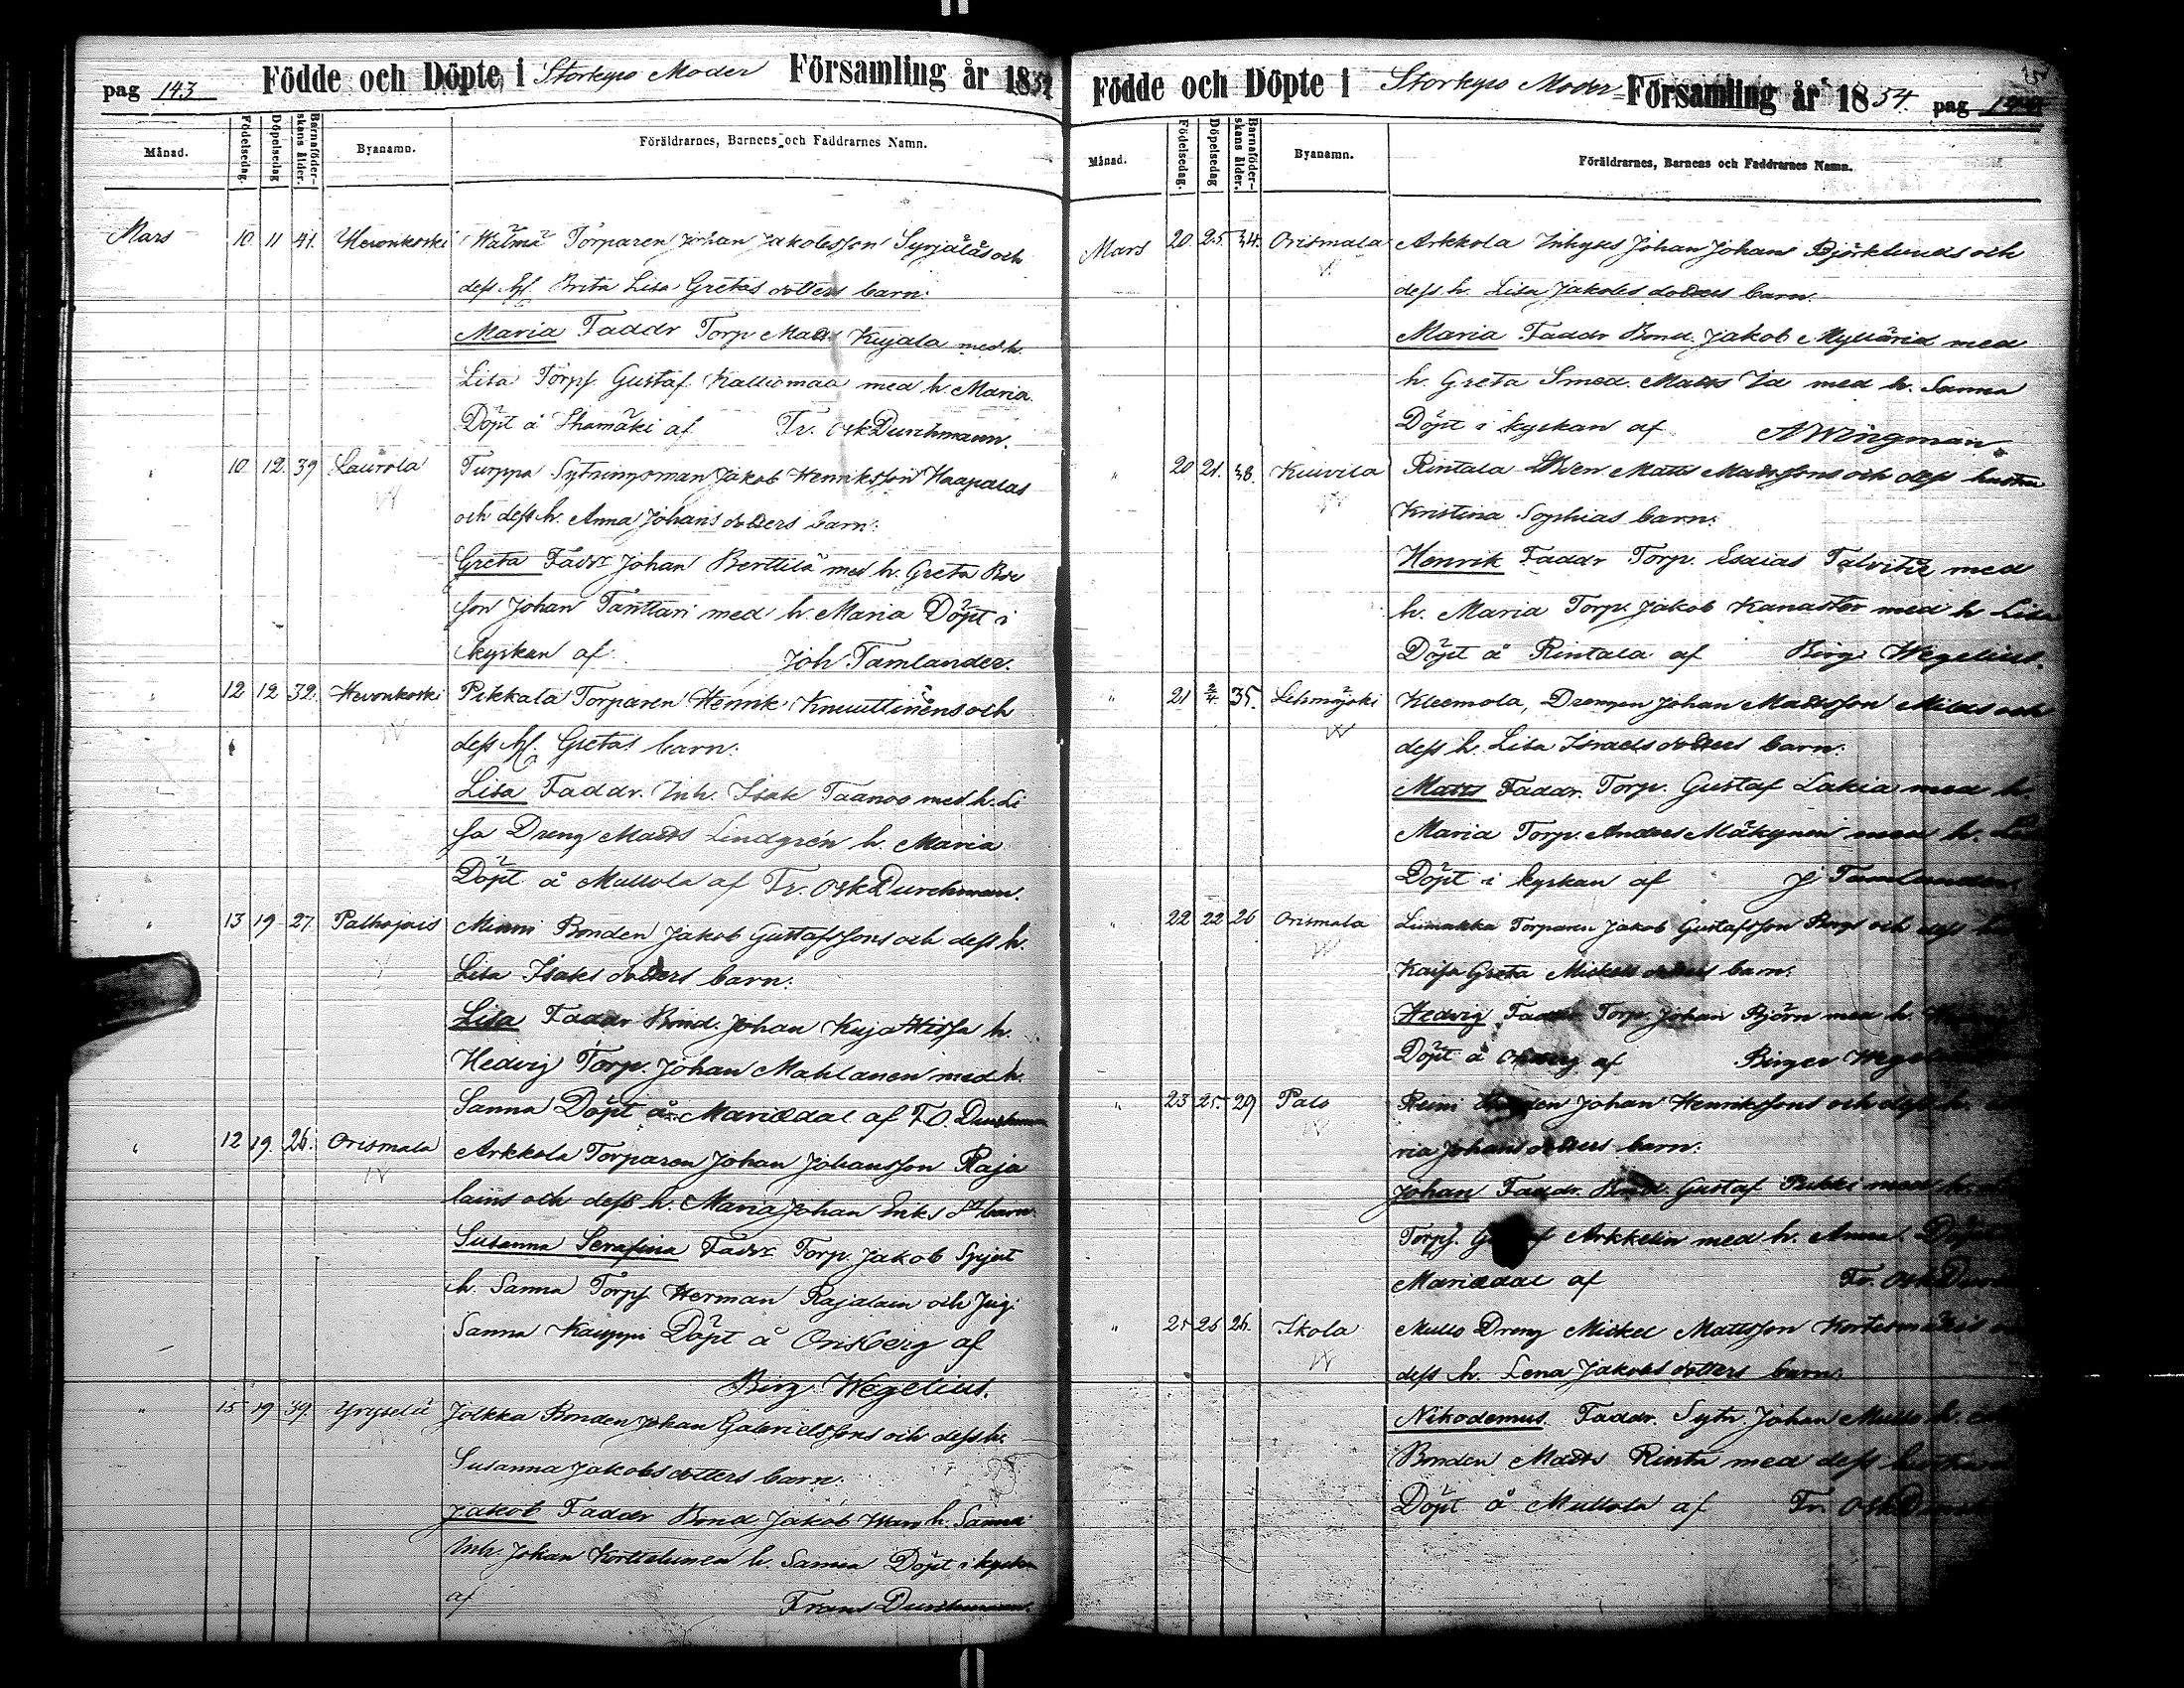 pag 143
Födde och Döpte i Storkyro Moder Församling år 1854
Månad.
Födelsedag.
Döpelsedag
Barnaföder-
skans ålder.
Byanamn.
Föräldrarnes, Barnens och Faddrarnes Namn.
Mars 10 11 41. Hevonkoski Wälmä Torparen Johan Jakobsson Syrjäläs och
dess h. Brita Lisa Gretas dotters barn.
Maria Faddr Torp Matts Kujala med h.
Lisa Torps. Gustaf Kalliomaa med h. Maria.
Döpt å af Fr. Osk Durchmann.
" 10 12. 39 Laurola Turppa Sytningsman Jakob Henriksson Haapalas
och dess h. Anna Johans dotters barn.
Greta Faddr Johan Berttilä med h. Greta Bde
son Johan Tanttari med h. Maria Döpt i
kyrkan af Joh Tamlander.
" 12 12 32. Hevonkoski Pikkala Torparen Henrik Knuuttinens och
dess h. Gretas barn.
Lisa Faddr. Inh. Isak Taanos med h. Li
sa Dreng Matts Lindgrén h. Maria
Döpt å Mullola af Fr. Osk Durchman.
" 13 19 27. Palhojais Minni Bonden Jakob Gustafssons och dess h.
Lisa Isaks dotters barn.
Lisa Faddr Bond. Johan Kuja h.
Hedvig Torp. Johan Mahlanen med h.
Sanna Döpt å Mariedal af F.O. Durchman
" 12 19. 26. Orismala Arkkola Torparen Johan Johansson Raja
lains och dess h. Maria Johan Eriks dr barn.
Susanna Serafina Faddr Torp. Jakob
h. Sanna Torps Herman Rajalain och Jugi
Sanna Kauppi Döpt å Orisberg af
Birg. Wegelius.
" 15 19 39. Yryselä Jolkka Bonden Johan Gabrielssons och dess h.
Susanna Jakobs dotters barn.
Jakob Faddr Bond Jakob h. Sanna
Inh. Johan Korttelainen h. Sanna Döpt i kyrkan
af Frans Durchmann.
Födde och Döpte i Storkyro Moder- Församling år 1854. pag 144
Månad.
Födelsedag.
Döpelsedag
Barnaföder-
skans ålder.
Byanamn.
Föräldrarnes, Barnens och Faddrarnes Namn.
Mars 20 25. 34. Orismala Arkkola Inhyses Johan Johans Björklunds och
dess h. Lisa Jakobs dotters barn.
Maria Faddr Bond. Jakob Myllärid med
h. Greta Smed. Matts med h. Sanna
Döpt i kyrkan af A Wingman.
" 20 21. 38. Kuivila Rintala Matts Mattssons och dess hustru
Kristina Sophias barn.
Henrik Faddr Torp. Esaias Talvitie med
h. Maria Torp. Jakob Kanaster med h Lisa
Döpt å Rintala af Birg. Wegelius.
" 21 2/4. 35. Lehmäjoki Kleemola, Drengen Johan Mattsson Milas och
dess h. Lisa Israels dotters barn.
Matts Faddr. Torp. Gustaf Lakia med h.
Maria Torp. Anders Mäkynen med h.
Döpt i kyrkan af J Tamlander
" 22 22 26 Orismala Liimakka Torparen Jakob Gustafsson Bergs och dess
Kaisa Greta Mickels dotters barn.
Hedvig Faddr Torp. Johan Björn med h.
Döpt å af Birger Wegelius
" 23 25. 29 Palo Reini Johan Henrikssons och dess h.
ria Johans dotters barn.
Johan Faddr. Bond. Gustaf Pukki med h.
Torps. Arkkelin med h. Anna. Döpt
Mariedal af Fr. Osk
" 25 26 26. Ikola Mullo Dreng Mickel Mattsson Kortesmäkis
dess h. Lena Jakobs dotters barn.
Nikodemus. Faddr. Sytn. Johan Mullo h.
Bonden Matts Rinta med dess hustru
Döpt å Mullola af Fr. Osk